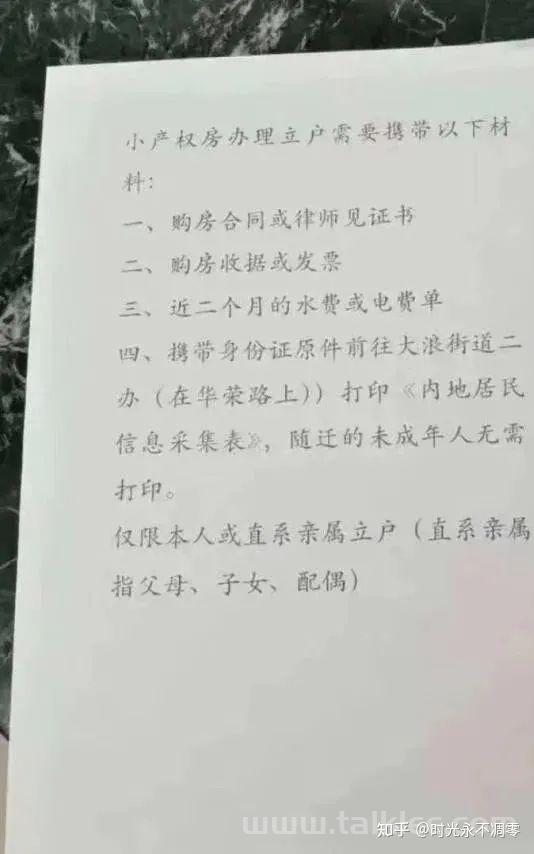 小产权房办理立户需要携带以下材
料：
一、购房合同或律师见证书
二、购房收据或发票
三、近二个月的水费或电费单
四、携带身份证原件前往大浪街道二
办（在华荣路上））打印《内地居民
信息采集表》，随迁的未成年人无需
打印。
仅限本人或直系亲属立户（直系亲属
指父母、子女、配偶）
www.talklcc.com
知乎 @时光永不凋零